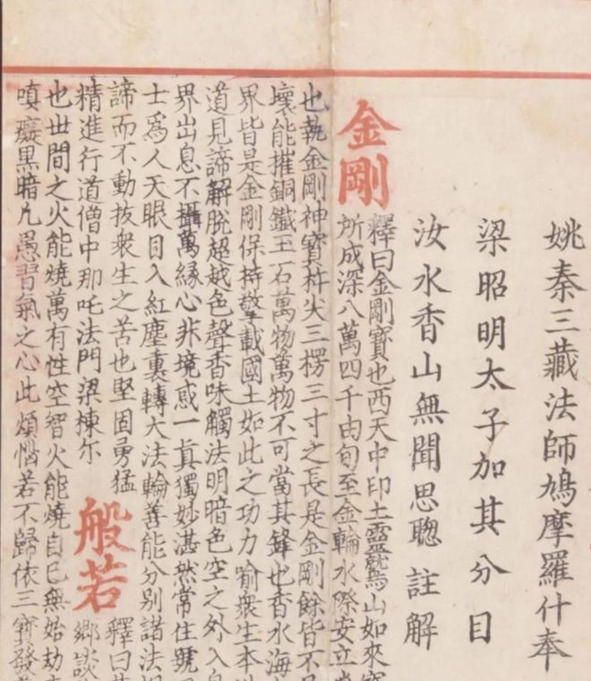 姚秦三藏法師鳩摩羅什奉
梁昭明太子加其分目
汝水香山無聞思聰註解
金剛
釋曰金剛寶也西天中印土靈鷲山如來
所成深八萬四千由旬至金輪水際安立
也執金剛神寶杵尖三楞三寸之長是金剛餘皆不
壞能摧銅鐵玉石萬物萬物不可當其鋒也香水海
界皆是金剛保持擎載國土如此之功力喻衆生本
道見諦解脫超越色聲香味觸法明暗色空之外入
界出息不攝萬緣心非境惑一眞獨妙湛然常住號
士爲人天眼目入紅塵裏轉大法輪善能分別諸法
諦而不動拔衆生之苦也堅固勇猛
精進行道僧中那吒法門梁棟尓
般若
釋曰
鄉談
也世間之火能燒萬有性空智火能燒自己無始劫
嗔癡黑暗凡愚習氣之心此煩惱若不歸依三寶發